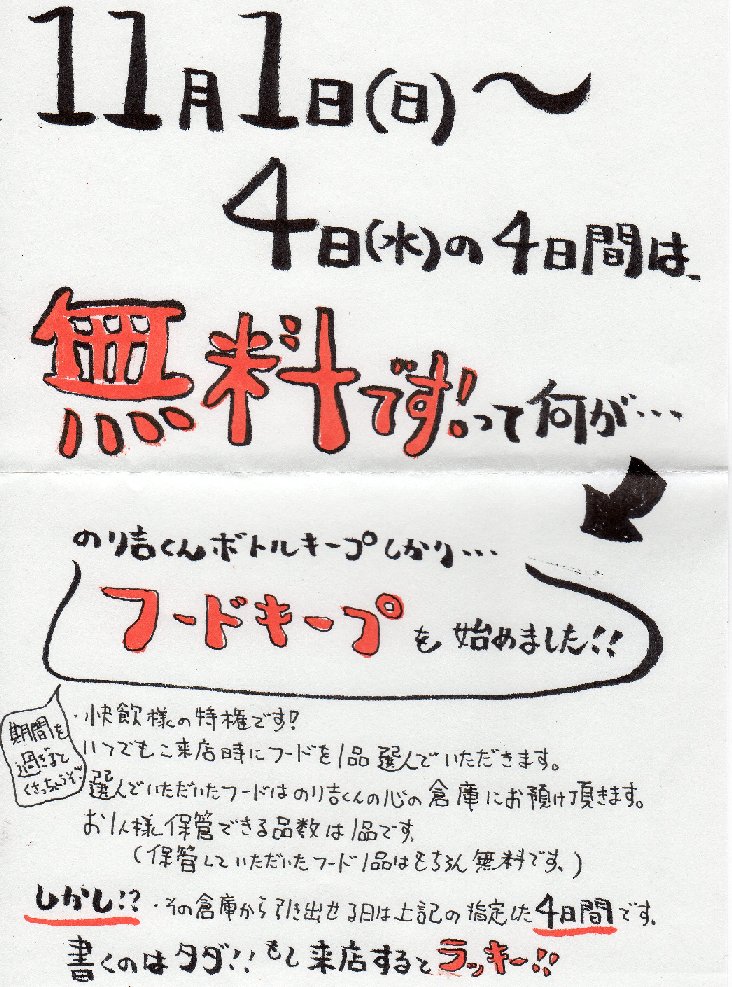 11月1日(日)〜
4日(水)の4日間は、
無料です!って何が…
のり吉くんボトルキープしかり…
フードキープを始めました!!
期間を
過ぎると
くさっちゃうぞ
・快飲様の特権です!
いつでもご来店時にフードを1品選んでいただきます。
選んでいただいたフードはのり吉くんの心の倉庫にお預け頂きます。
お1人様保管できる品数は1品です。
(保管していただいたフード1品はもちろん無料です。)
しかし!?・その倉庫から引き出せる日は上記の指定した4日間です。
書くのはタダ!!もし来店するとラッキー!!